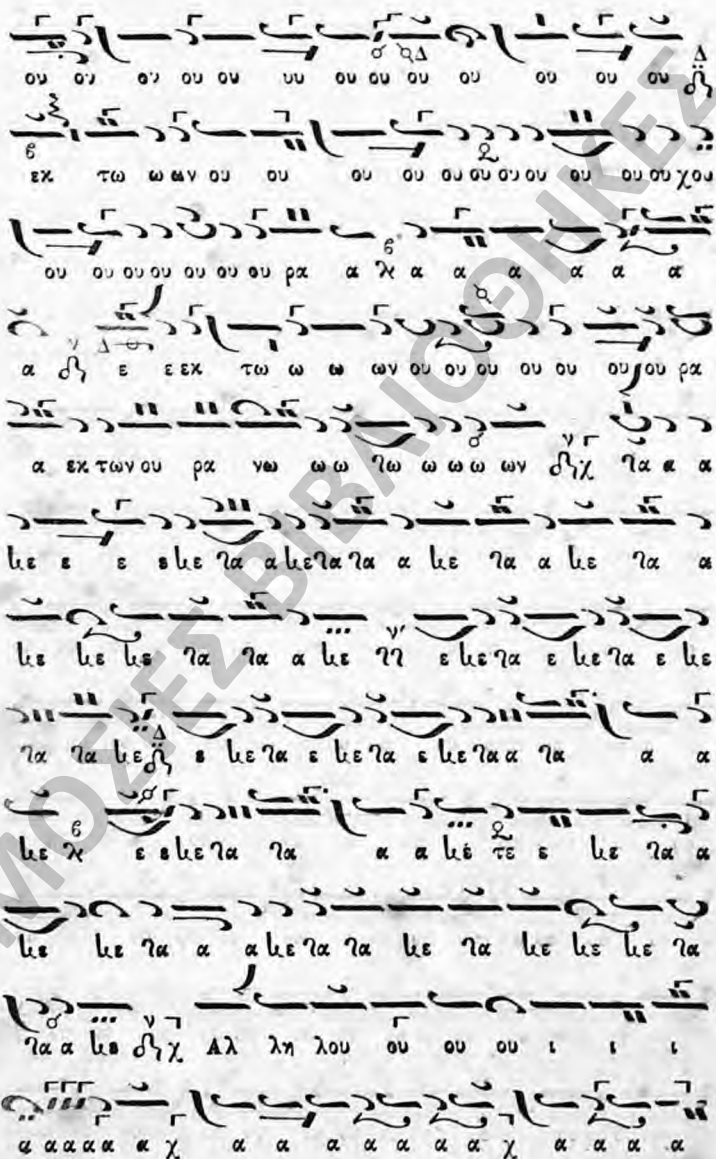 ου ου ου ου ου ου ου ου ου ου ου ου ου
εκ τω ω ων ου ου ου ου ου ου ου ου ου ου ου χου
ου ου ου ου ου ου ου ρα α α α α α α α
α ε ε εκ τω ω ω ων ου ου ου ου ου ου ου ρα
α εκ των ου ρα νω ω ω τω ω ω ω ων τα α α
κε ε ε ε κε τα α κε τα τα α κε τα α κε τα α
κε κε κε τα τα α κε ε κε τα ε κε τα ε κε
τα τα κε ε κε τα ε κε τα ε κε τα α τα α α
κε ε ε κε τα τα α α κέ τε ε κε τα α
κε κε τα α α κε τα τα κε τα κε κε κε τα
τα α κε Αλ λη λου ου ου ου ι ι ι
α α α α α α χ α α α α α α α χ α α α α
ΜΟΣΙΕΣ ΒΙΒΛΙΟΘΗΚΕΣ